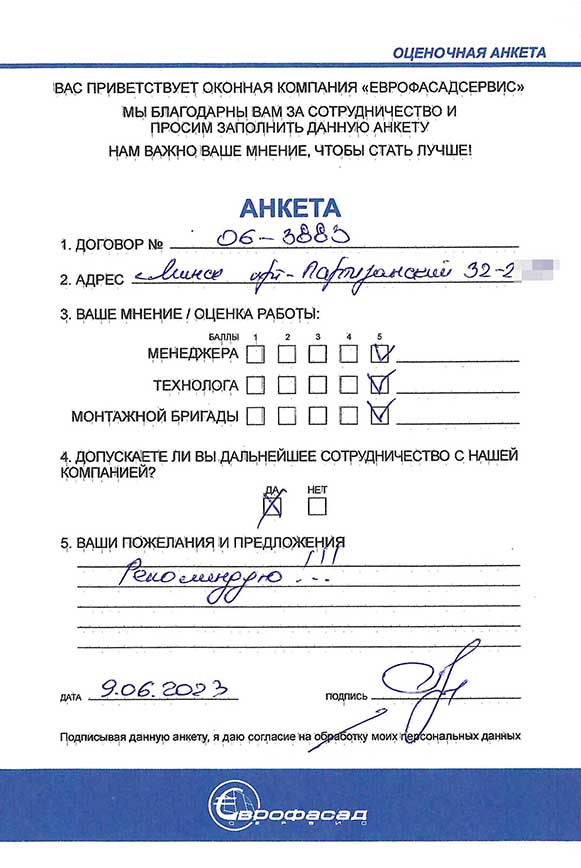 ОЦЕНОЧНАЯ АНКЕТА
ВАС ПРИВЕТСТВУЕТ ОКОННАЯ КОМПАНИЯ «ЕВРОФАСАДСЕРВИС»
МЫ БЛАГОДАРНЫ ВАМ ЗА СОТРУДНИЧЕСТВО И
ПРОСИМ ЗАПОЛНИТЬ ДАННУЮ АНКЕТУ
НАМ ВАЖНО ВАШЕ МНЕНИЕ, ЧТОБЫ СТАТЬ ЛУЧШЕ!
АНКЕТА
1. ДОГОВОР № 06-3883
2. АДРЕС г. Минск пр-т Партизанский 32-2
3. ВАШЕ МНЕНИЕ / ОЦЕНКА РАБОТЫ:
БАЛЛЫ 1 2 3 4 5
МЕНЕДЖЕРА
ТЕХНОЛОГА
МОНТАЖНОЙ БРИГАДЫ
4. ДОПУСКАЕТЕ ЛИ ВЫ ДАЛЬНЕЙШЕЕ СОТРУДНИЧЕСТВО С НАШЕЙ
КОМПАНИЕЙ?
ДА НЕТ
5. ВАШИ ПОЖЕЛАНИЯ И ПРЕДЛОЖЕНИЯ
Рекомендую!!!
ДАТА 9.06.2023 ПОДПИСЬ
Подписывая данную анкету, я даю согласие на обработку моих персональных данных
Єврофасад
СЕРВИС